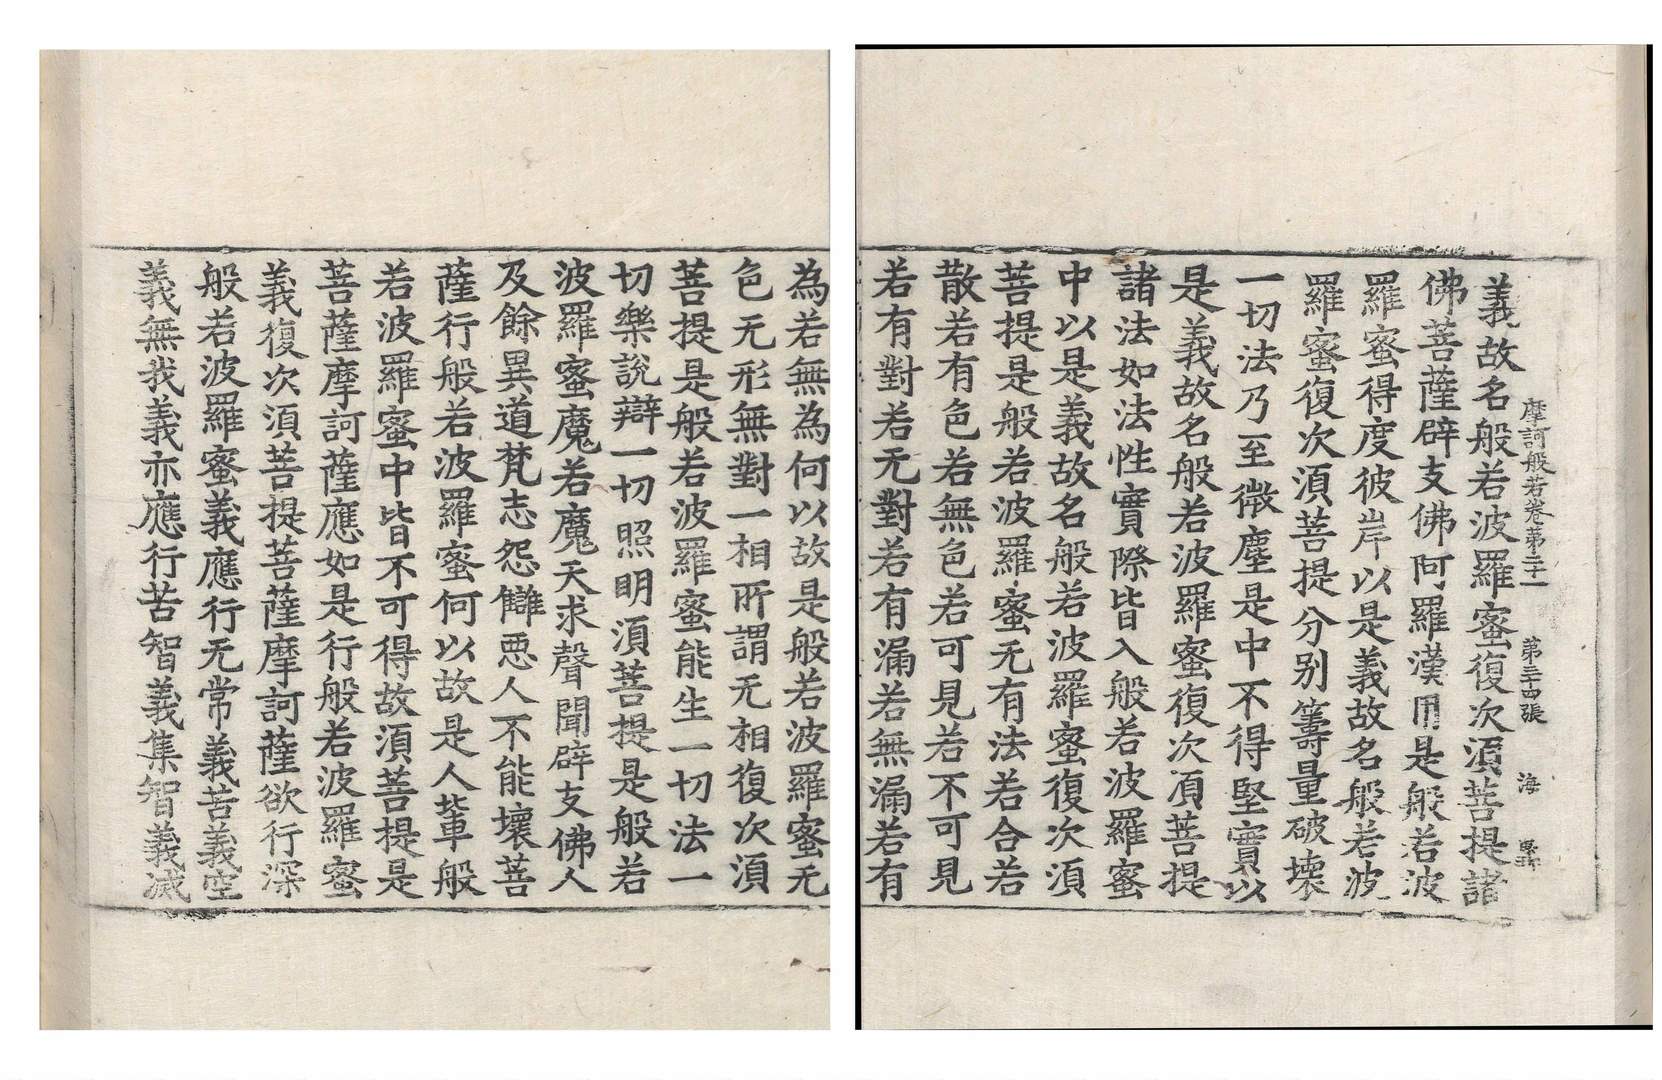 摩訶般若卷第二十一 第三十四張 海
義故名般若波羅蜜復次湏菩提諸
佛菩薩辟支佛阿羅漢用是般若波
羅蜜得度彼岸以是義故名般若波
羅蜜復次湏菩提分别籌量破壞
一切法乃至微塵是中不得堅實以
是義故名般若波羅蜜復次湏菩提
諸法如法性實際皆入般若波羅蜜
中以是義故名般若波羅蜜復次湏
菩提是般若波羅蜜无有法若合若
散若有色若無色若可見若不可見
若有對若无對若有漏若無漏若有
為若無為何以故是般若波羅蜜无
色无形無對一相所謂无相復次湏
菩提是般若波羅蜜能生一切法一
切樂說辯一切照明湏菩提是般若
波羅蜜魔若魔天求聲聞辟支佛人
及餘異道梵志怨讎惡人不能壞菩
薩行般若波羅蜜何以故是人輩般
若波羅蜜中皆不可得故湏菩提是
菩薩摩訶薩應如是行般若波羅蜜
義復次湏菩提菩薩摩訶薩欲行深
般若波羅蜜義應行无常義苦義空
義無我義亦應行苦智義集智義滅